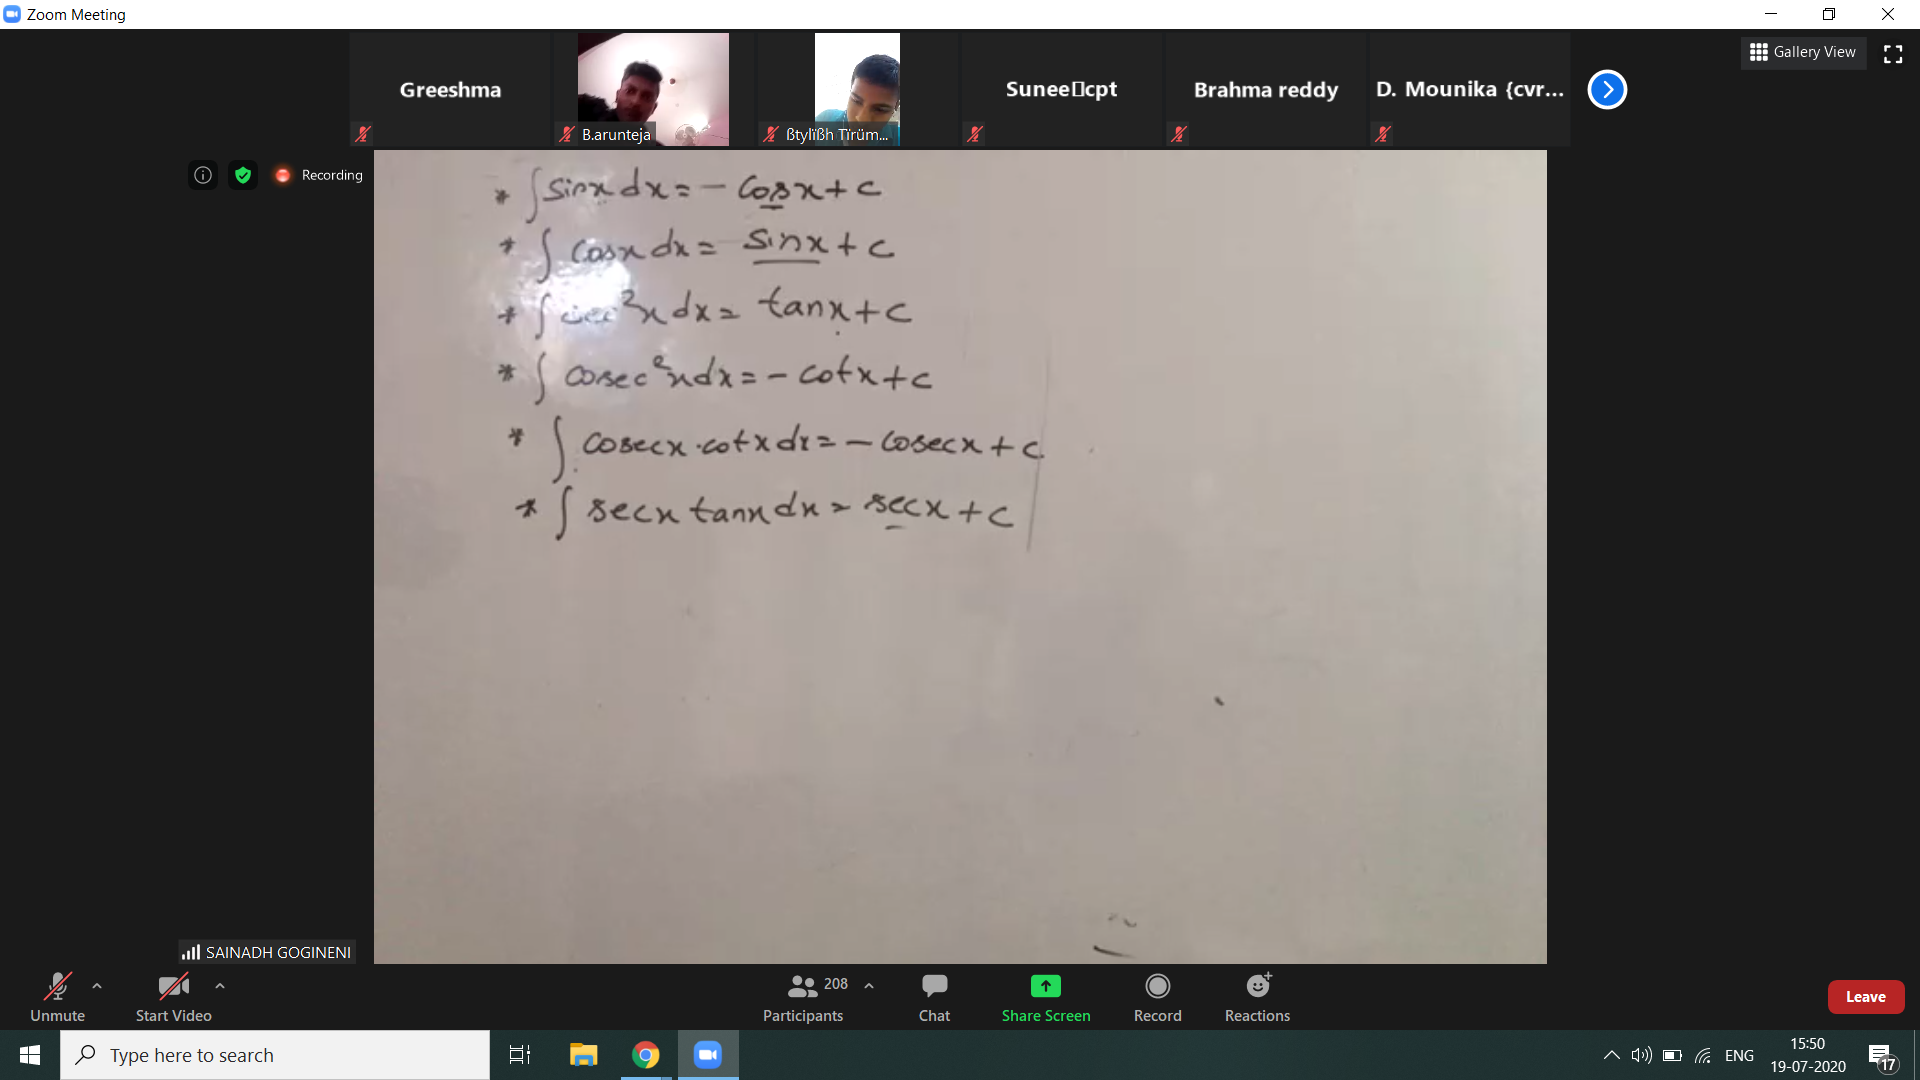 Zoom Meeting
Gallery View
Greeshma
B.arunteja
ßtylïßh Tïrüm...
Sunee▯cpt
Brahma reddy
D. Mounika {cvr...
Recording
* ∫sinx dx = - cosx + c
* ∫ cosx dx = sinx + c
* ∫ sec²x dx = tanx + c
* ∫ cosec²x dx = - cotx + c
* ∫ cosecx · cotx dx = - cosecx + c
* ∫ secx tanx dx = secx + c
SAINADH GOGINENI
Unmute
Start Video
208
Participants
Chat
Share Screen
Record
Reactions
Leave
Type here to search
ENG
15:50
19-07-2020
17